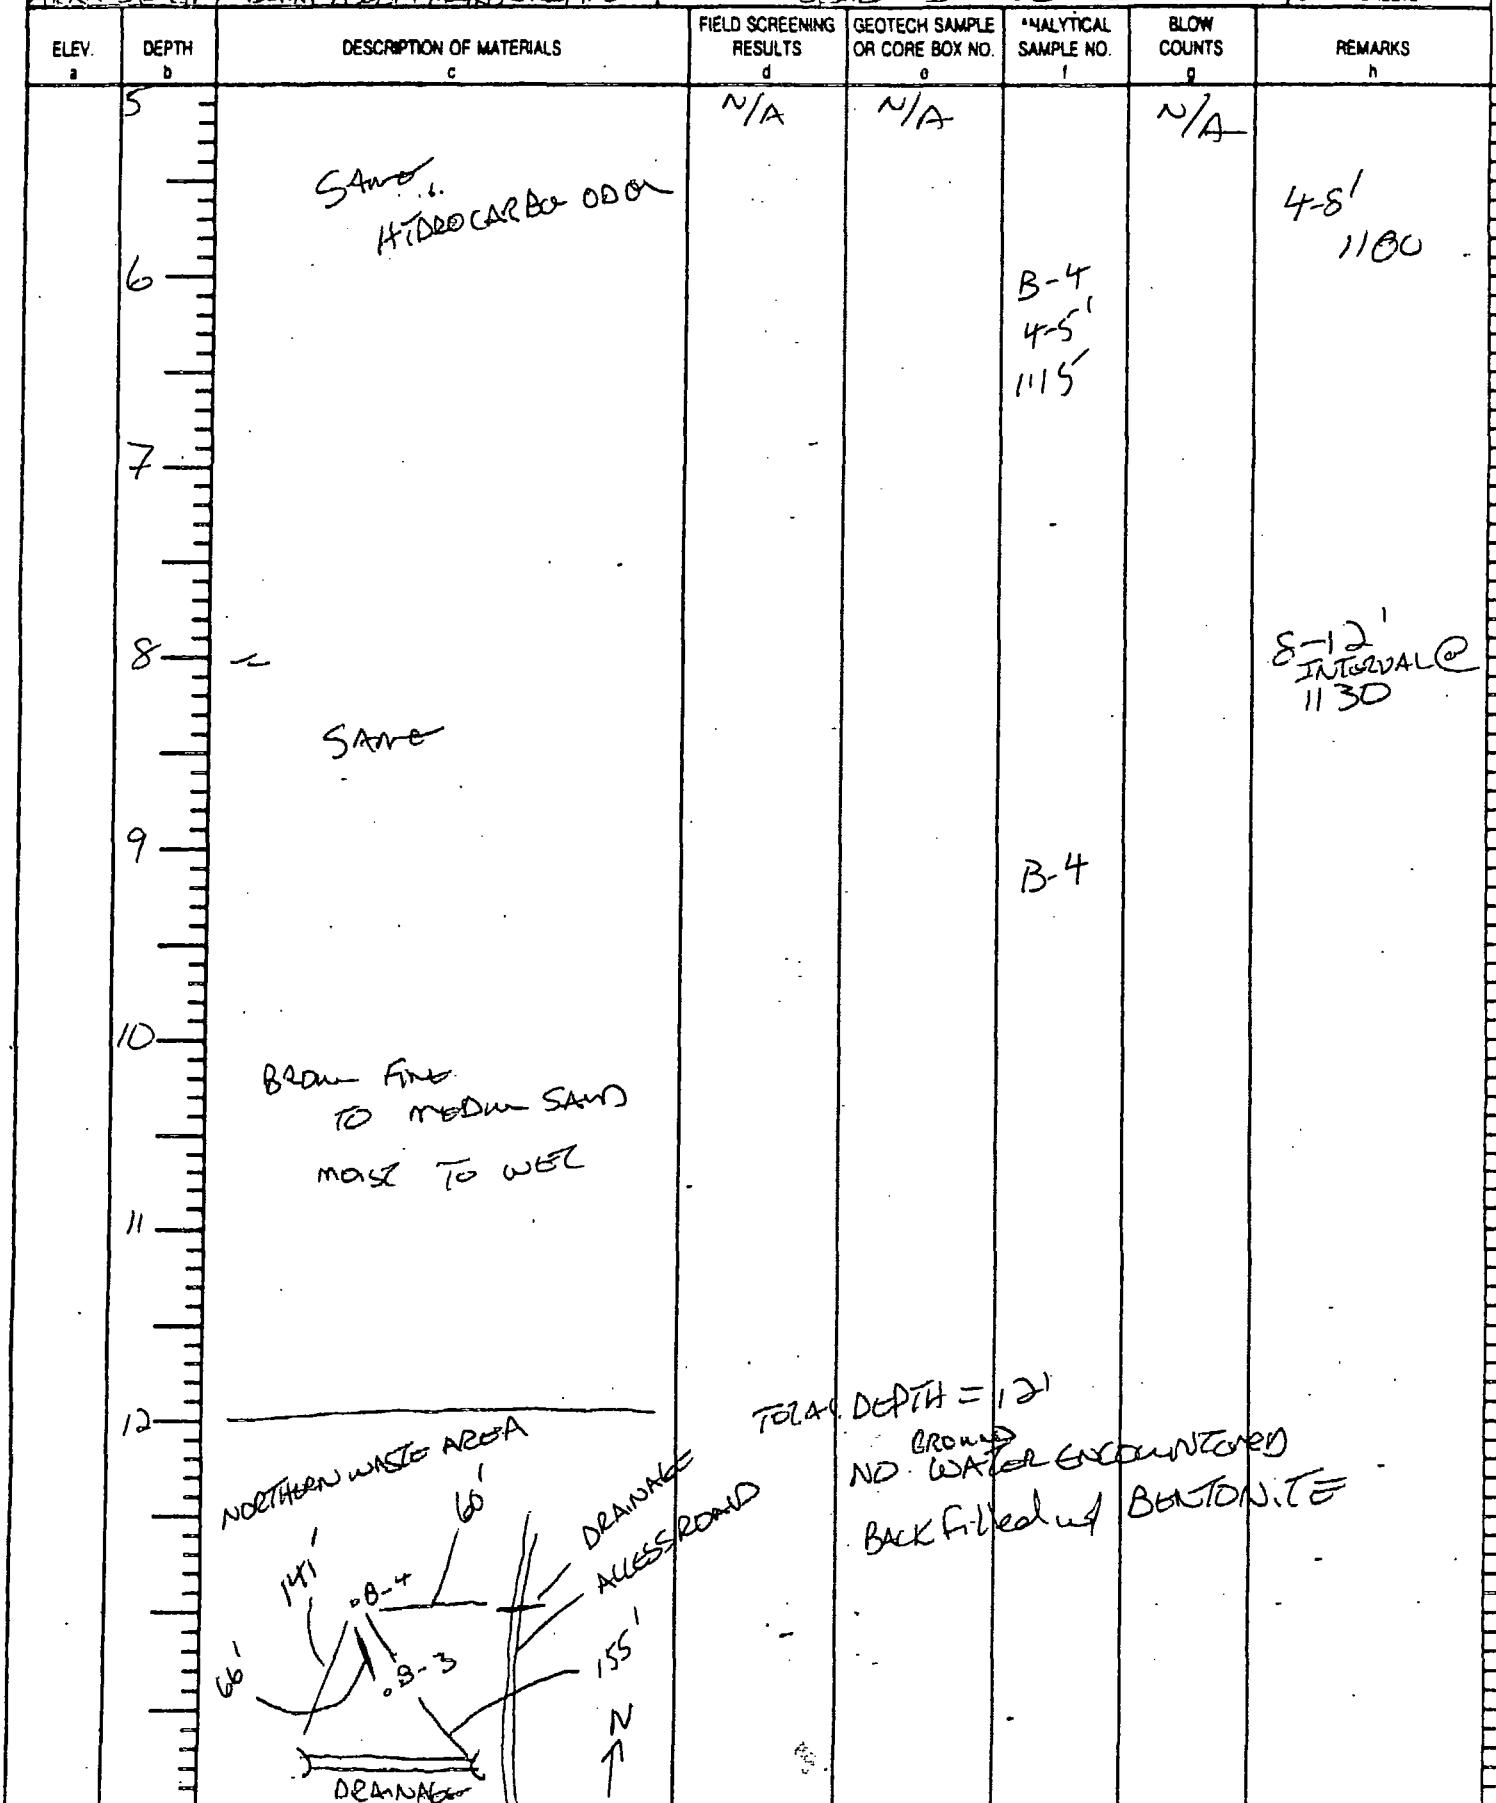 ELEV.
a
DEPTH
b
DESCRIPTION OF MATERIALS
c
FIELD SCREENING
RESULTS
d
GEOTECH SAMPLE
OR CORE BOX NO.
e
ANALYTICAL
SAMPLE NO.
f
BLOW
COUNTS
g
REMARKS
h
5
N/A
N/A
N/A
SAME
HYDROCARBON ODOR
4-8'
1100
6
B-4
4-5'
1115
7
8
8-12'
INTERVAL @
1130
SAME
9
B-4
10
BROWN FINE
TO MEDIUM SAND
MOIST TO WET
11
12
TOTAL DEPTH = 12'
GROUND
NO WATER ENCOUNTERED
BACKFilled w/ BENTONITE
NORTHERN WASTE AREA
60'
DRAINAGE
ACCESS ROAD
141'
B-4
66'
B-3
155'
N
DRAINAGE